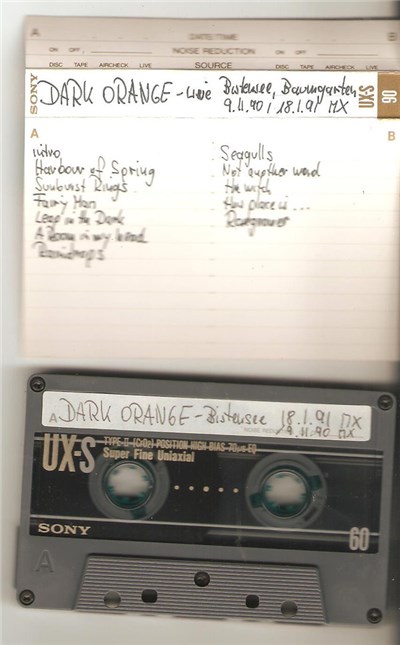 A DATE/TIME B
ON OFF NOISE REDUCTION ON OFF
DISC TAPE AIRCHECK LIVE SOURCE DISC TAPE AIRCHECK LIVE
SONY DARK ORANGE - Live Bistensee, Baumgarten UX-S 90
9.11.90 / 18.1.91 MX
A B
intro
Harbour of Spring
Sunburst Rings
Fairy Man
Leap in the Dark
A Room in my head
Raindrops
Seagulls
Not another word
the witch
How place is...
A DARK ORANGE - Bistensee 18.1.91 MX
9.11.90 MX
UX-S TYPE-II (CrO2) POSITION HIGH BIAS 70μs EQ
Super Fine Uniaxial
SONY 60
A